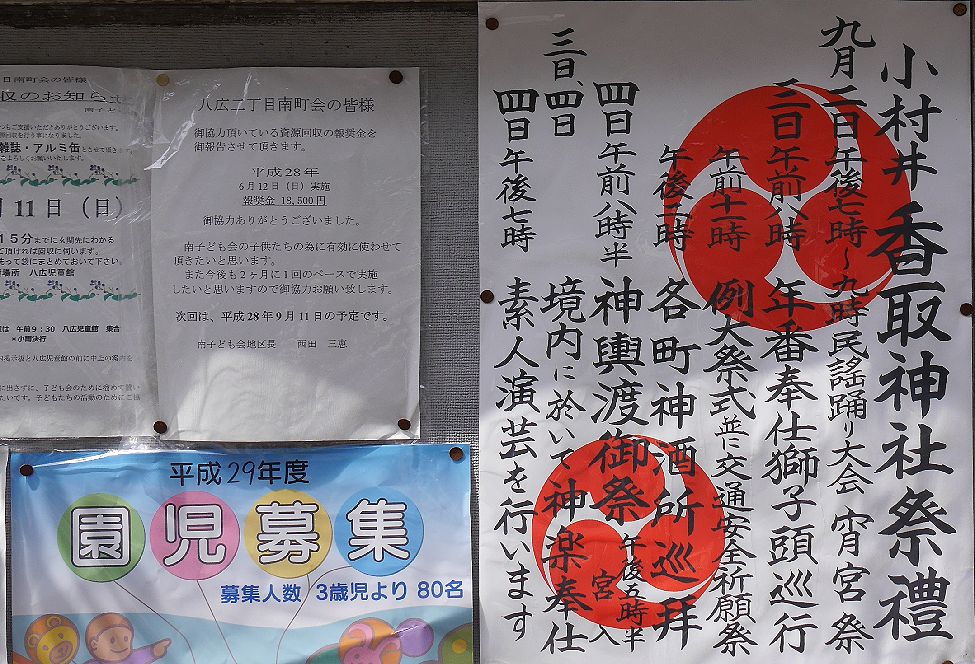 小村井 香取神社祭禮
九月 二日 午後七時～九時 民謡踊り大会 宵宮祭
三日 午前八時 年番奉仕獅子頭巡行
午前十一時 例大祭式 並に交通安全祈願祭
午後二時 各町神酒所巡拜
四日 午前八時半 神輿渡御祭 午後五時半 宮入
三日、四日 境内に於いて神楽奉仕
四日 午後七時 素人演芸を行います
八広二丁目南町会の皆様
御協力頂いている資源回収の報奨金を
御報告させて頂きます。
平成28年
6月12日（日）実施
報奨金 18,500円
御協力ありがとうございました。
南子ども会の子供たちの為に有効に使わせて
頂きたいと思います。
また今後も2ヶ月に1回のペースで実施
したいと思いますので御協力お願い致します。
次回は、平成28年9月11日の予定です。
南子ども会地区長 西田 三恵
目南町会の皆様
収のお知らせ
雑誌・アルミ缶
月11日（日）
15分までに玄関先にわかる
ご頂ければ回収に伺います。
もって袋にまとめておいて下さい。
場所 八広児童館
は 午前9：30 八広児童館 集合
＊小雨決行
平成29年度
園児募集
募集人数 3歳児より 80名